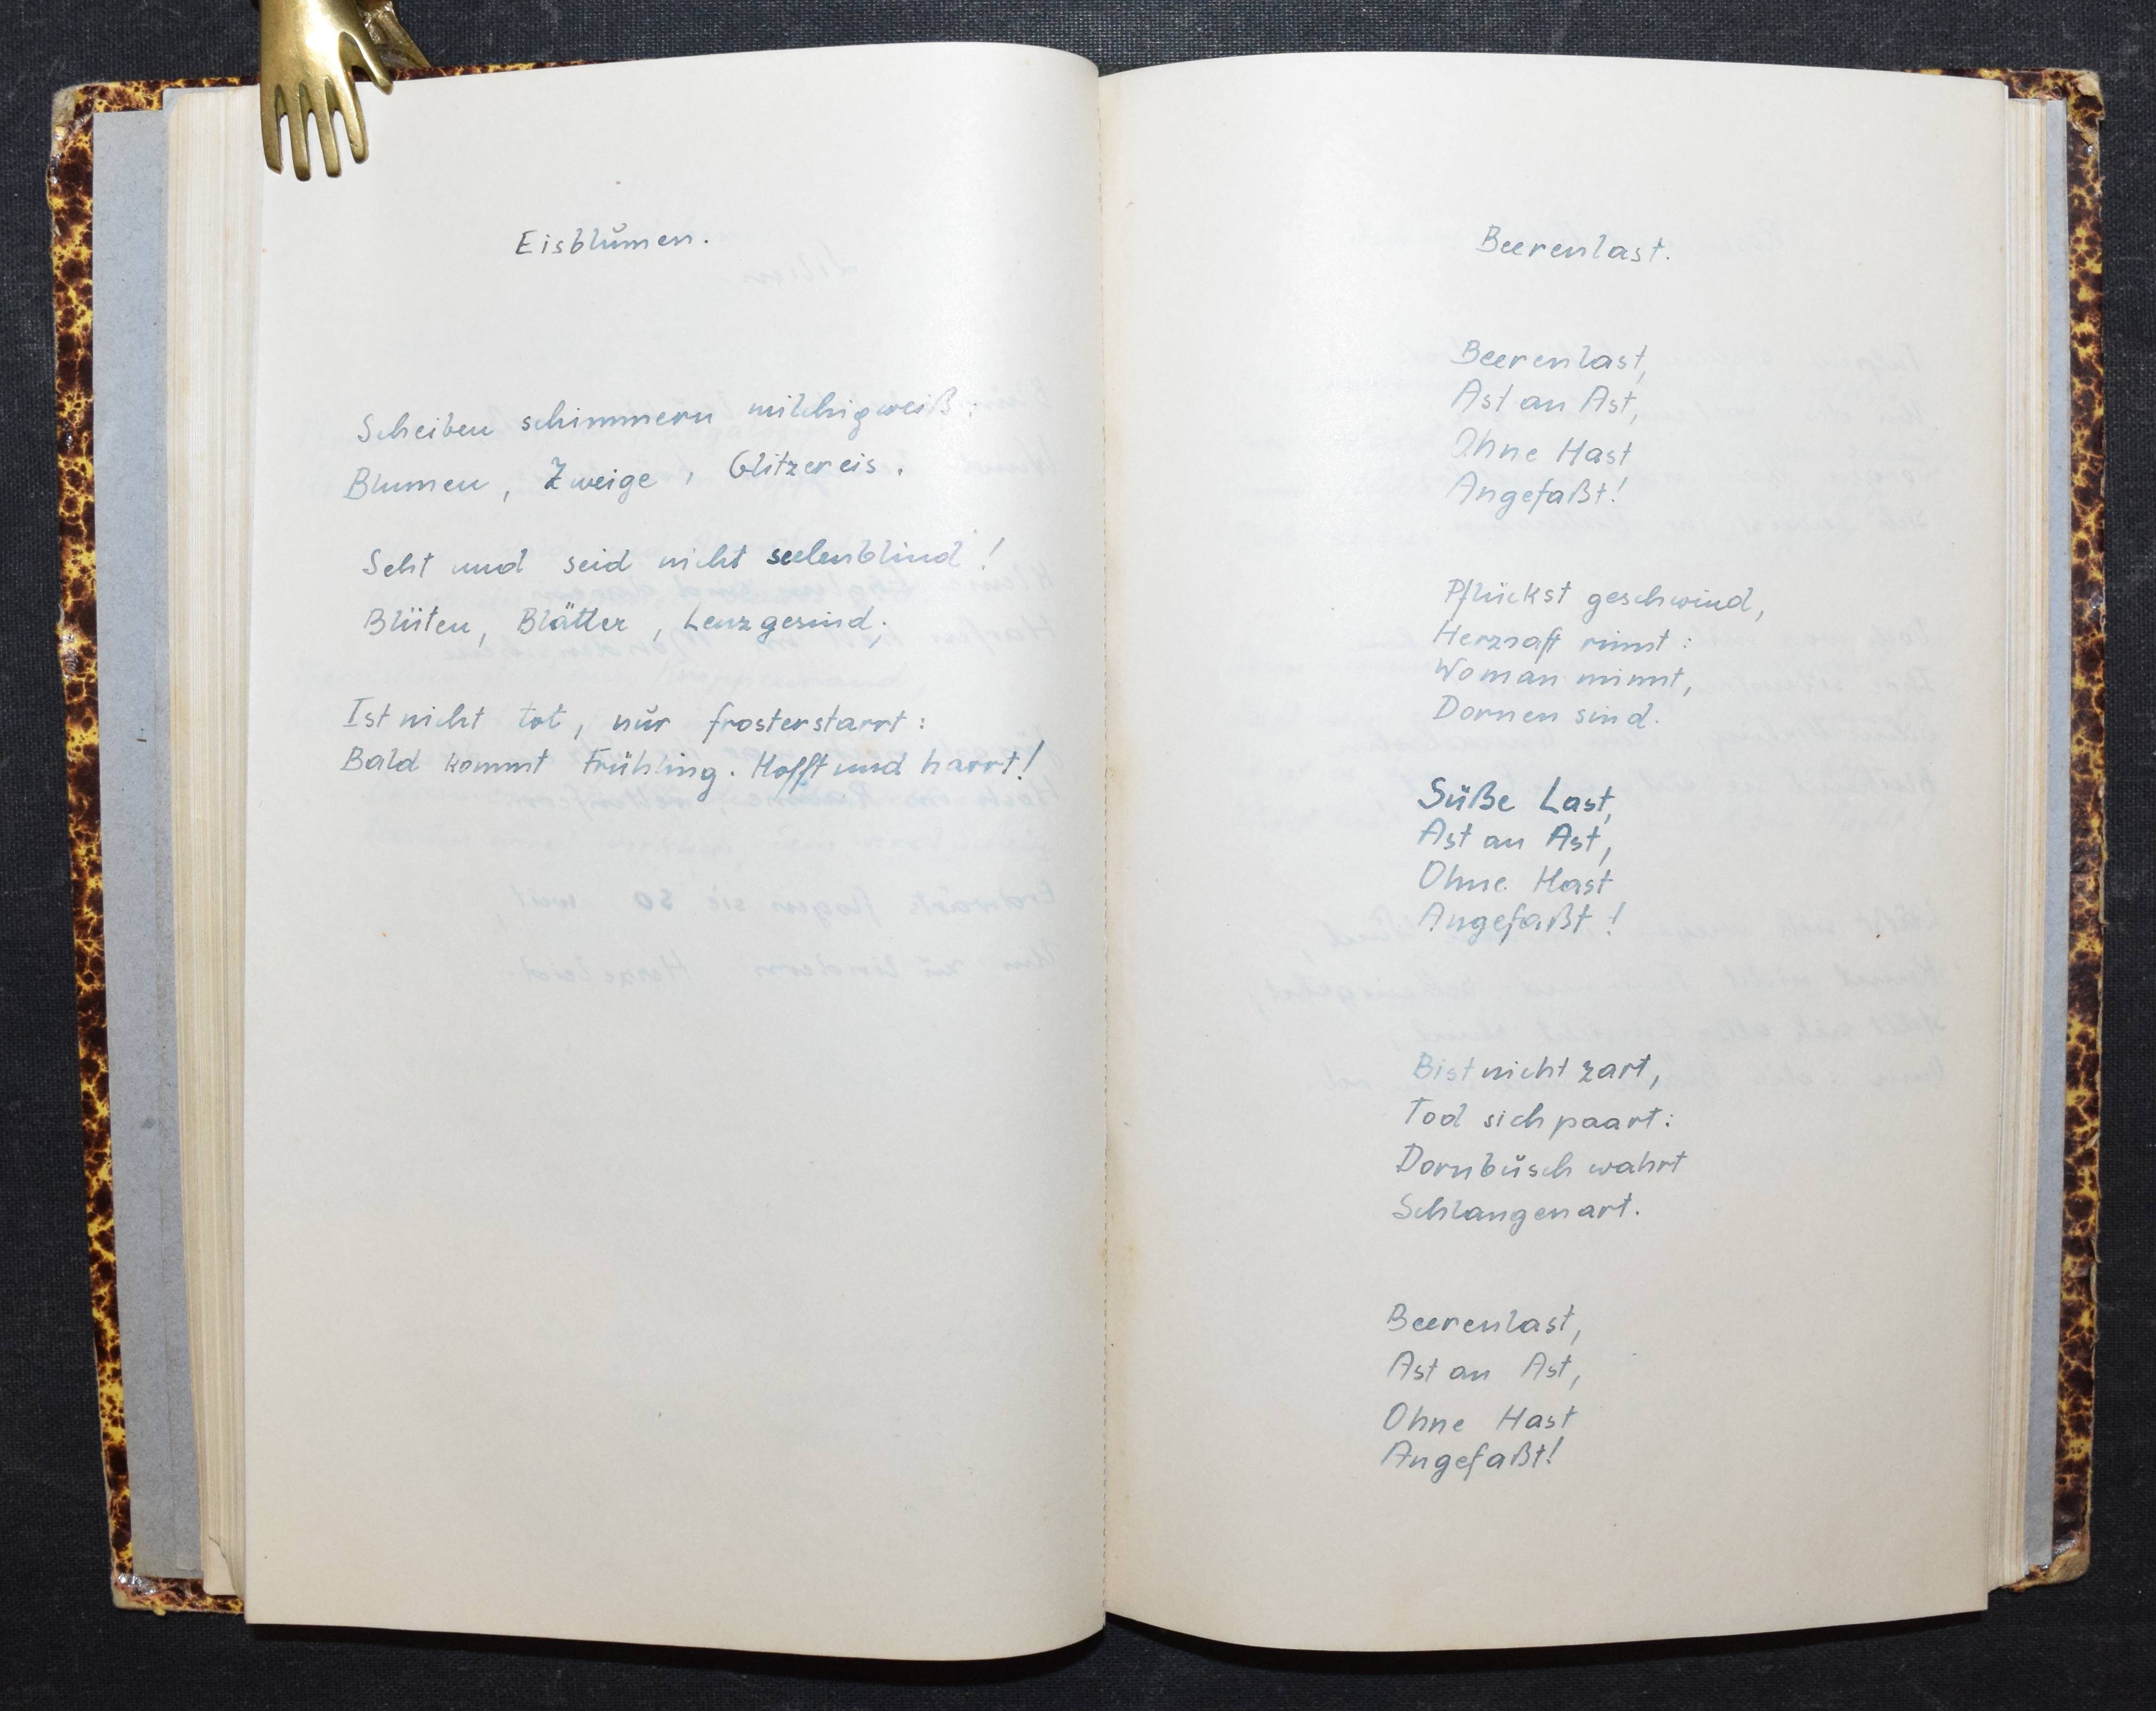 Eisblumen.
Scheiben schimmern milchigweiß:
Blumen, Zweige, Glitzereis.
Seht und seid nicht seelenblind!
Blüten, Blätter, Lenzgesind.
Ist nicht tot, nur frosterstarrt:
Bald kommt Frühling. Hofft und harrt!
Beerenlast.
Beerenlast,
Ast an Ast,
Ohne Hast
Angefaßt!
Pflückst geschwind,
Herzsaft rinnt:
Woman minnt,
Dornen sind.
Süße Last,
Ast an Ast,
Ohne Hast
Angefaßt!
Bist nicht zart,
Tod sich paart:
Dornbusch wahrt
Schlangenart.
Beerenlast,
Ast an Ast,
Ohne Hast
Angefaßt!